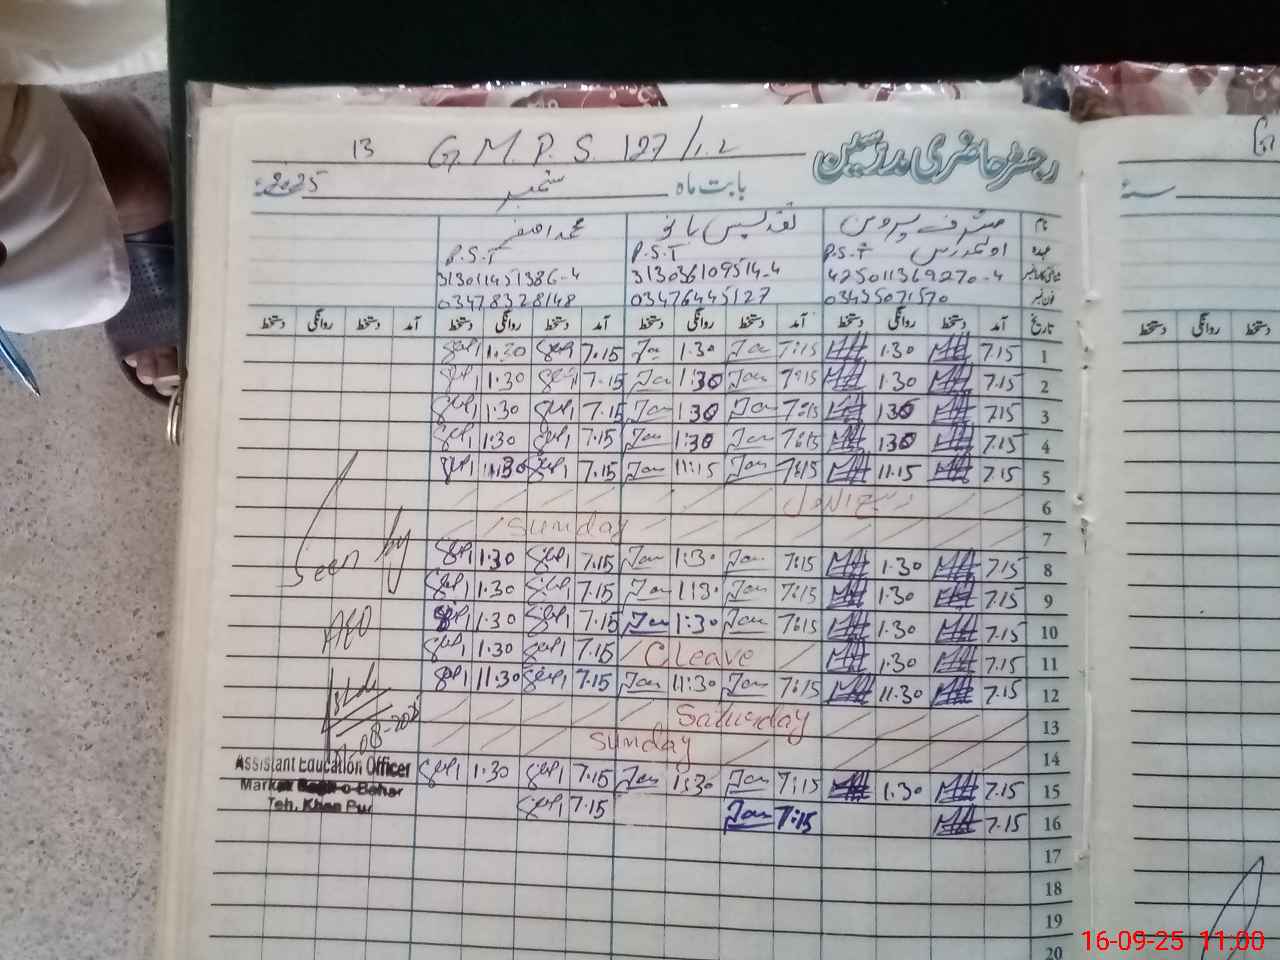 13 G.M.P.S. 127/1.L رجسٹر حاضری مدرسین
2025 بابت ماہ ستمبر
سنہ
نام محمد اصغر
عہدہ اول مدرس P.S.T P.S.T P.S.T
425011369270-4 313036109514-4 313011451386-4
فون نمبر 03455071570 03476445127 03478328148
تاریخ آمد دستخط روانگی دستخط آمد دستخط روانگی دستخط آمد دستخط روانگی دستخط آمد دستخط روانگی دستخط
1 7.15 1.30 7:15 Jan 1:30 Jan 7.15 1:30
2 7.15 1.30 7:15 Jan 1:30 Jan 7.15 1.30
3 7.15 1.30 7:15 Jan 1:30 Jan 7.15 1.30
4 7.15 1.30 7:15 Jan 1:30 Jan 7.15 1.30
5 7.15 11.15 7:15 Jan 11:15 Jan 7.15 11:30
6
7 Sunday
8 7.15 1.30 7:15 Jan 1:30 Jan 7.15 1.30
9 7.15 1.30 7:15 Jan 1:30 Jan 7.15 1.30
10 7.15 1.30 7:15 Jan 1:30 Jan 7.15 1.30
11 7.15 1.30 C Leave 7.15 1.30
12 7.15 11.30 7:15 Jan 11:30 Jan 7.15 11.30
13 Saturday
14 Sunday
15 7.15 1.30 7:15 Jan 1:30 Jan 7.15 1.30
16 7.15 7:15 Jan 7.15
17
18
19
20
Seen by
AEO
Assistant Education Officer
Markaz
Teh. Khan Pur
دستخط روانگی دستخط
16-09-25 11:00